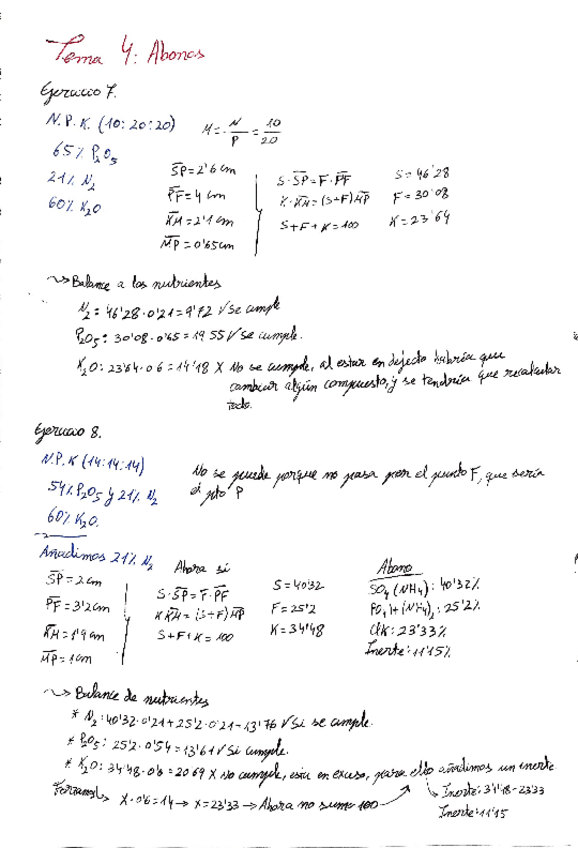 Tema 4: Abonos
Ejercicio 7.
N.P.K. (10:20:20) M = N/P = 10/20
65% P₂O₅
21% N₂
60% K₂O
S̅P̅ = 2'6 cm
P̅F̅ = 4 cm
K̅M̅ = 2'1 cm
M̅P̅ = 0'65cm
S·S̅P̅ = F·P̅F̅
K·K̅M̅ = (S+F)M̅P̅
S+F+K = 100
S = 46'28
F = 30'08
K = 23'64
↝ Balance a los nutrientes
N₂ = 46'28·0'21 = 9'72 √ Se cumple
P₂O₅: 30'08·0'65 = 19'55 √ Se cumple.
K₂O: 23'64·0'6 = 14'18 X No se cumple, al estar en defecto habría que
cambiar algún compuesto, y se tendría que recalcular
todo.
Ejercicio 8.
N.P.K (14:14:14)
54% P₂O₅ y 21% N₂
60% K₂O.
No se puede porque no pasa por el punto F, que sería
el pto P
Añadimos 21% N₂ Ahora sí
S̅P̅ = 2 cm
P̅F̅ = 3'2 cm
K̅M̅ = 1'9 cm
M̅P̅ = 1 cm
S·S̅P̅ = F·P̅F̅
K·K̅M̅ = (S+F)M̅P̅
S+F+K = 100
S = 40'32
F = 25'2
K = 34'48
Abono
SO₄(NH₄): 40'32%
PO₄H(NH₄)₂: 25'2%
ClK: 23'33%
Inerte: 11'15%
↝ Balance de nutrientes
* N₂: 40'32·0'21+25'2·0'21 = 13'76 √ Si se cumple.
* P₂O₅: 25'2·0'54 = 13'61 √ Si cumple.
* K₂O: 34'48·0'6 = 20'69 X No cumple, esta en exceso, para ello añadimos un inerte
X·0'6 = 14 → X = 23'33 → Ahora no suma 100
Inerte: 34'48-23'33
Inerte: 11'15